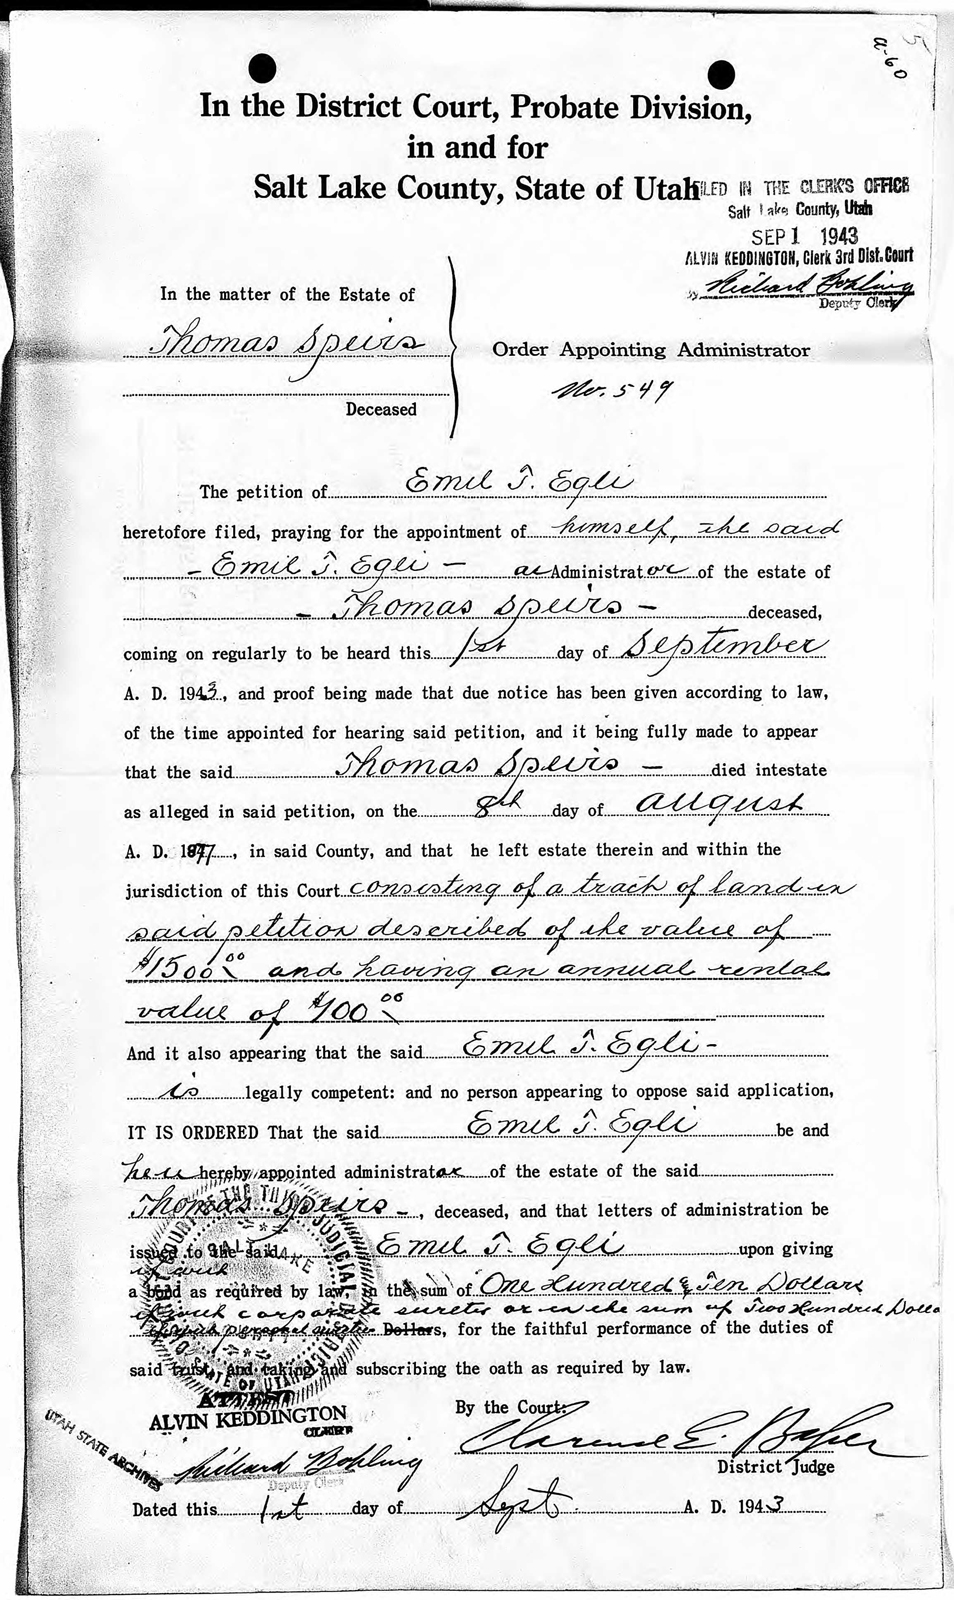 a-60
5
In the District Court, Probate Division,
in and for
Salt Lake County, State of Utah
FILED IN THE CLERK'S OFFICE
Salt Lake County, Utah
SEP 1 1943
ALVIN KEDDINGTON, Clerk 3rd Dist. Court
By Richard Bohling
Deputy Clerk
In the matter of the Estate of
Thomas Speirs
Deceased
Order Appointing Administrator
No. 549
The petition of Emil T. Egli
heretofore filed, praying for the appointment of himself, the said
- Emil T. Egli - as Administrator of the estate of
- Thomas Speirs - deceased,
coming on regularly to be heard this 1st day of September
A. D. 1943, and proof being made that due notice has been given according to law,
of the time appointed for hearing said petition, and it being fully made to appear
that the said Thomas Speirs - died intestate
as alleged in said petition, on the 8th day of August
A. D. 1877, in said County, and that he left estate therein and within the
jurisdiction of this Court consisting of a tract of land in
said petition described of the value of
$1500.00 and having an annual rental
value of $100.00
And it also appearing that the said Emil T. Egli -
is legally competent: and no person appearing to oppose said application,
IT IS ORDERED That the said Emil T. Egli be and
he is hereby appointed administrator of the estate of the said
Thomas Speirs -, deceased, and that letters of administration be
issued to the said Emil T. Egli upon giving
if with
a bond as required by law, in the sum of One Hundred & Ten Dollars
if with corporate surety or in the sum of Two Hundred Dolla
if with personal sureties Dollars, for the faithful performance of the duties of
said trust, and taking and subscribing the oath as required by law.
ATTEST
ALVIN KEDDINGTON
CLERK
Richard Bohling
Deputy Clerk
UTAH STATE ARCHIVES
By the Court:
Clarence E. Baker
District Judge
Dated this 1st day of Sept. A. D. 1943